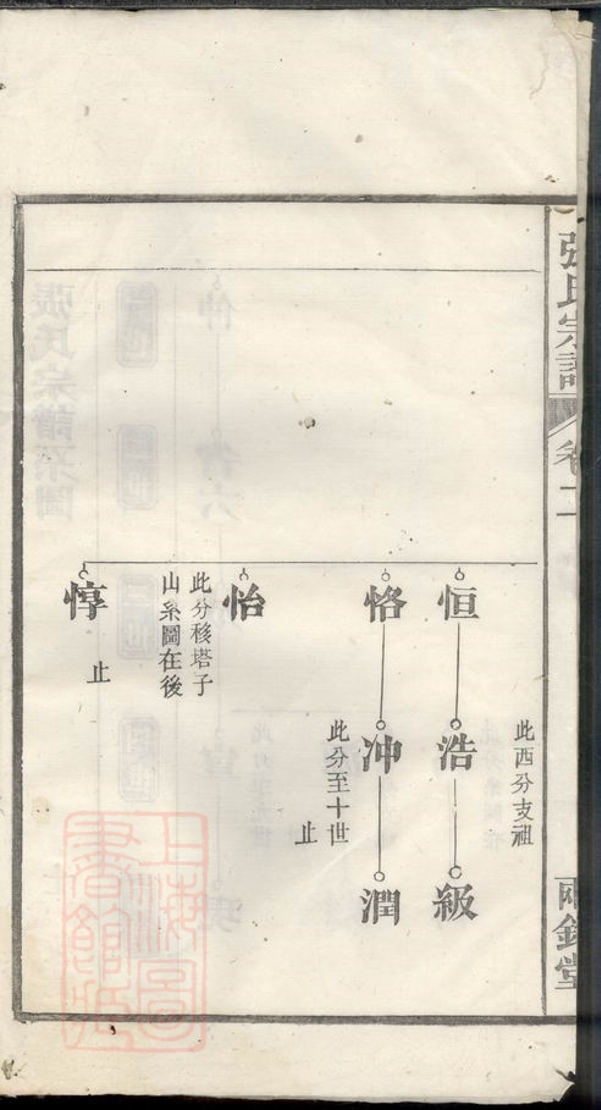 張氏宗譜
卷二
兩銘堂
此西分支祖
恒
浩
級
恪
沖
潤
此分至十世
止
怡
此分移塔子
山系圖在後
惇
止
上海圖
書館藏